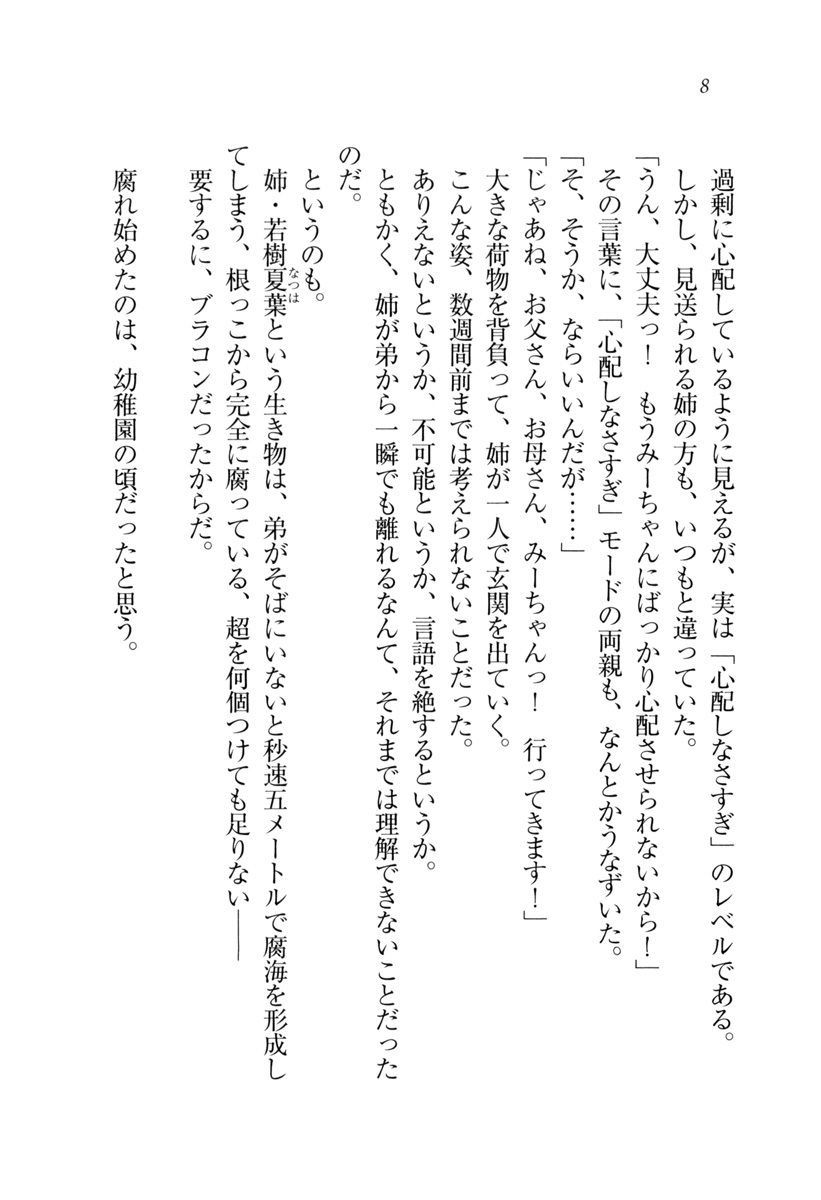 8
過剰に心配しているように見えるが、実は「心配しなさすぎ」のレベルである。
しかし、見送られる姉の方も、いつもと違っていた。
「うん、大丈夫っ！　もうみーちゃんにばっかり心配させられないから！」
その言葉に、「心配しなさすぎ」モードの両親も、なんとかうなずいた。
「そ、そうか、ならいいんだが……」
「じゃあね、お父さん、お母さん、みーちゃんっ！　行ってきます！」
大きな荷物を背負って、姉が一人で玄関を出ていく。
こんな姿、数週間前までは考えられないことだった。
ありえないというか、不可能というか、言語を絶するというか。
ともかく、姉が弟から一瞬でも離れるなんて、それまでは理解できないことだった
のだ。
というのも。
姉・若樹夏葉という生き物は、弟がそばにいないと秒速五メートルで腐海を形成し
なつは
てしまう、根っこから完全に腐っている、超を何個つけても足りない――
要するに、ブラコンだったからだ。
腐れ始めたのは、幼稚園の頃だったと思う。